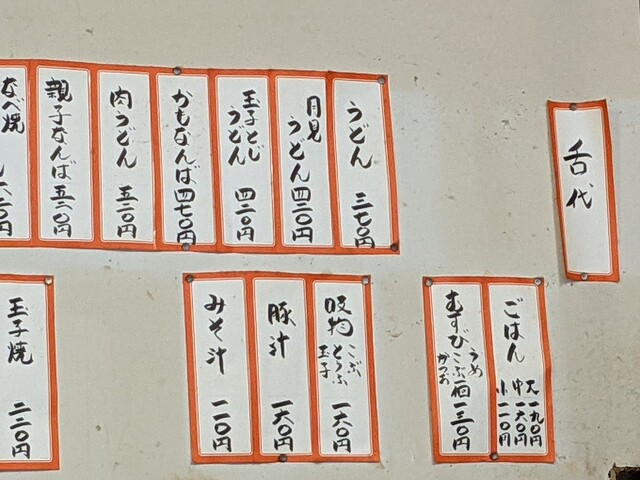 舌代
うどん 三七〇円
月見うどん 四二〇円
玉子とじうどん 四二〇円
かもなんば 四七〇円
肉うどん 五二〇円
親子なんば 五二〇円
なべ焼
二〇円
ごはん
大 一九〇円
中 一六〇円
小 一一〇円
むすび
うめ
こぶ
かつお
一個 一三〇円
吸物
こぶ
とうふ
玉子
一六〇円
豚汁 一六〇円
みそ汁 一一〇円
玉子焼 二二〇円